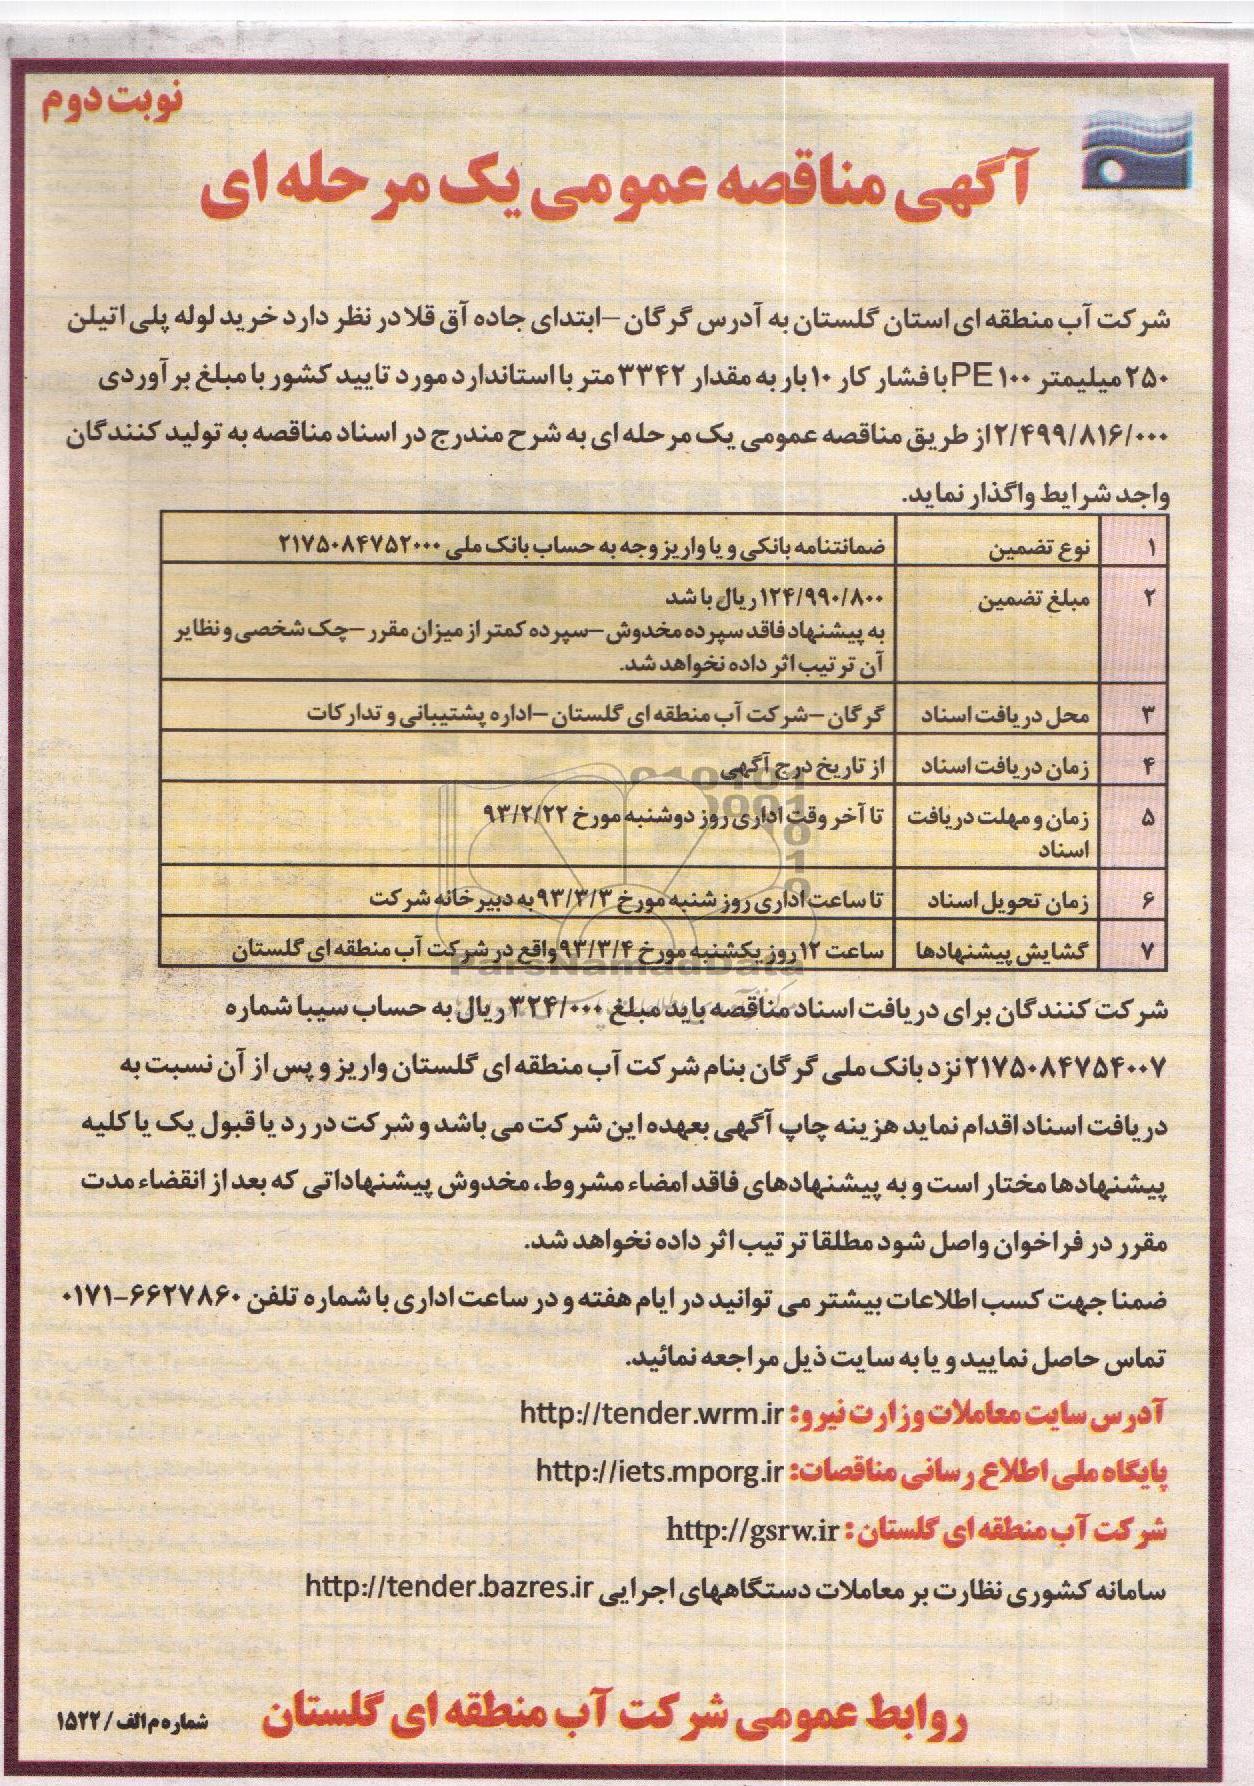 نوبت دوم
آگهی مناقصه عمومی یک مرحله ای
شرکت آب منطقه ای استان گلستان به آدرس گرگان –ابتدای جاده آق قلا در نظر دارد خرید لوله پلی اتیلن
۲۵۰ میلیمتر PE۱۰۰ با فشار کار ۱۰بار به مقدار ۳۳۴۲ متر با استاندارد مورد تایید کشور با مبلغ برآوردی
۲/۴۹۹/۸۱۶/۰۰۰ از طریق مناقصه عمومی یک مرحله ای به شرح مندرج در اسناد مناقصه به تولید کنندگان
واجد شرایط واگذار نماید.
۱ نوع تضمین ضمانتنامه بانکی و یا واریز وجه به حساب بانک ملی ۲۱۷۵۰۸۴۷۵۲۰۰۰
۲ مبلغ تضمین ۱۲۴/۹۹۰/۸۰۰ ریال با شد
به پیشنهاد فاقد سپرده مخدوش –سپرده کمتر از میزان مقرر –چک شخصی و نظایر
آن ترتیب اثر داده نخواهد شد.
۳ محل دریافت اسناد گرگان –شرکت آب منطقه ای گلستان –اداره پشتیبانی و تدارکات
۴ زمان دریافت اسناد از تاریخ درج آگهی
۵ زمان و مهلت دریافت اسناد تا آخر وقت اداری روز دوشنبه مورخ ۹۳/۲/۲۲
۶ زمان تحویل اسناد تا ساعت اداری روز شنبه مورخ ۹۳/۳/۳ به دبیرخانه شرکت
۷ گشایش پیشنهادها ساعت ۱۲ روز یکشنبه مورخ ۹۳/۳/۴ واقع در شرکت آب منطقه ای گلستان
ParsNamadData
شرکت کنندگان برای دریافت اسناد مناقصه باید مبلغ ۳۲۴/۰۰۰ ریال به حساب سیبا شماره
۲۱۷۵۰۸۴۷۵۴۰۰۷ نزد بانک ملی گرگان بنام شرکت آب منطقه ای گلستان واریز و پس از آن نسبت به
دریافت اسناد اقدام نماید هزینه چاپ آگهی بعهده این شرکت می باشد و شرکت در رد یا قبول یک یا کلیه
پیشنهادها مختار است و به پیشنهادهای فاقد امضاء مشروط، مخدوش پیشنهاداتی که بعد از انقضاء مدت
مقرر در فراخوان واصل شود مطلقا ترتیب اثر داده نخواهد شد.
ضمنا جهت کسب اطلاعات بیشتر می توانید در ایام هفته و در ساعت اداری با شماره تلفن ۶۶۲۷۸۶۰-۰۱۷۱
تماس حاصل نمایید و یا به سایت ذیل مراجعه نمائید.
آدرس سایت معاملات وزارت نیرو: http://tender.wrm.ir
پایگاه ملی اطلاع رسانی مناقصات: http://iets.mporg.ir
شرکت آب منطقه ای گلستان: http://gsrw.ir
سامانه کشوری نظارت بر معاملات دستگاههای اجرایی http://tender.bazres.ir
روابط عمومی شرکت آب منطقه ای گلستان
شماره م الف / ۱۵۲۲